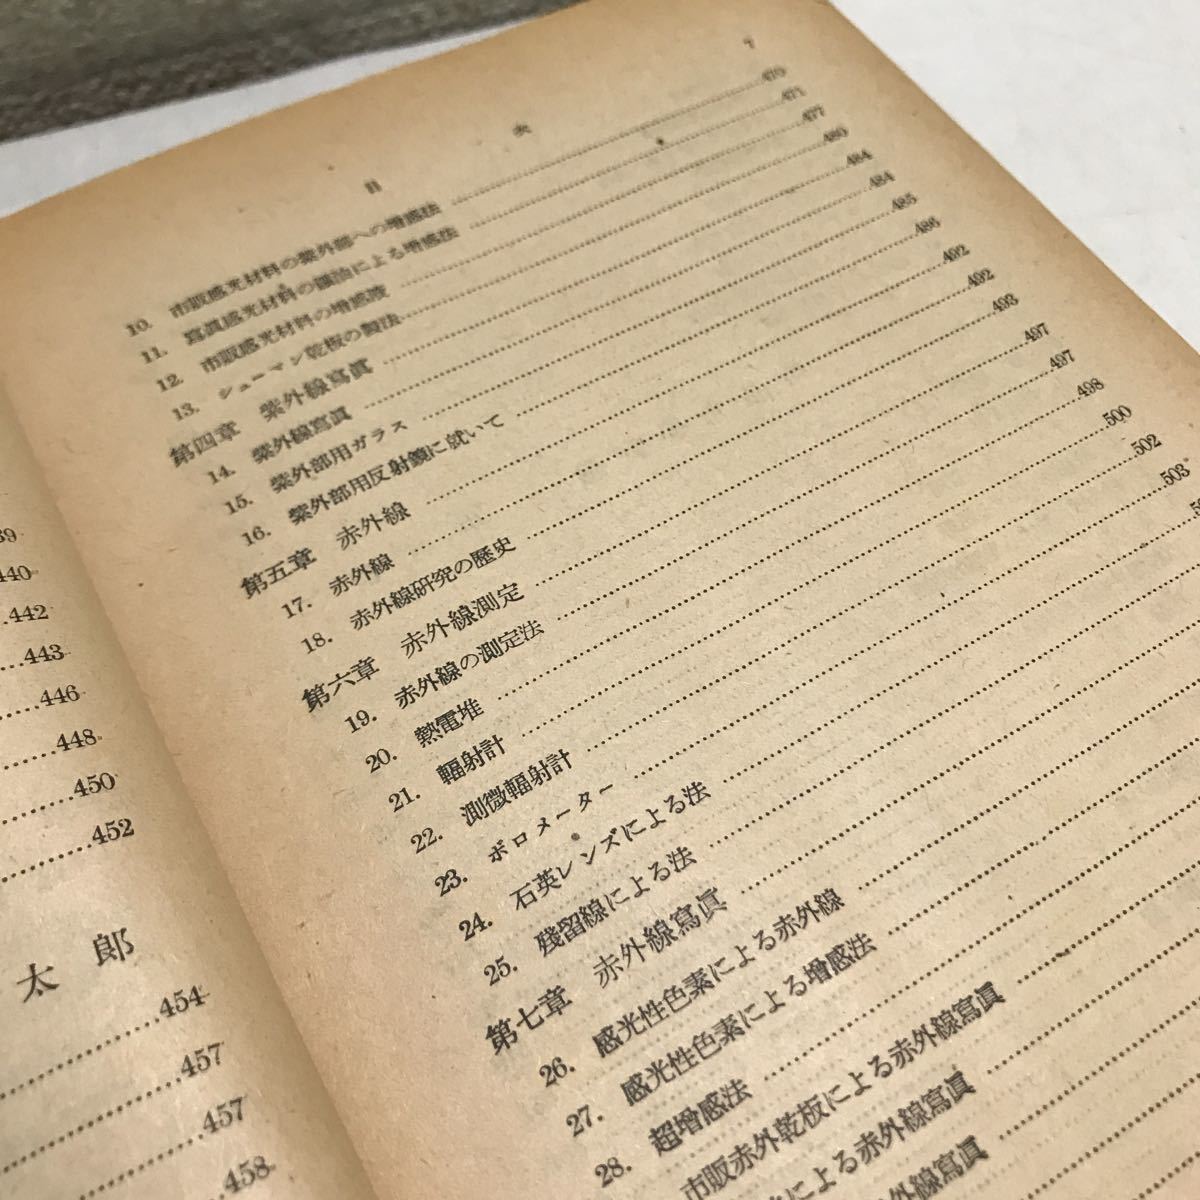 440
442
443
446
448
450
452
太郎
454
457
457
458
目次 7
10. 市販感光材料の紫外部への増感法 470
11. 寫眞感光材料の醤油による増感法 471
12. 市販感光材料の増感液 477
13. シューマン乾板の製法 480
第四章 紫外線寫眞 484
14. 紫外線寫眞 484
15. 紫外部用ガラス 485
16. 紫外部用反射鏡に就いて 486
第五章 赤外線 492
17. 赤外線 492
18. 赤外線研究の歴史 493
第六章 赤外線測定 497
19. 赤外線の測定法 497
20. 熱電堆 498
21. 輻射計 500
22. 測微輻射計 502
23. ボロメーター 503
24. 石英レンズによる法
25. 残留線による法
第七章 赤外線寫眞
26. 感光性色素による赤外線
27. 感光性色素による増感法
28. 超増感法
市販赤外乾板による赤外線寫眞
による赤外線寫眞
赤外線寫眞